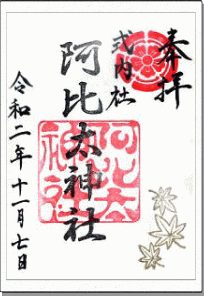 奉拝
式内社
阿比太神社
阿比太神社
令和二年十一月七日